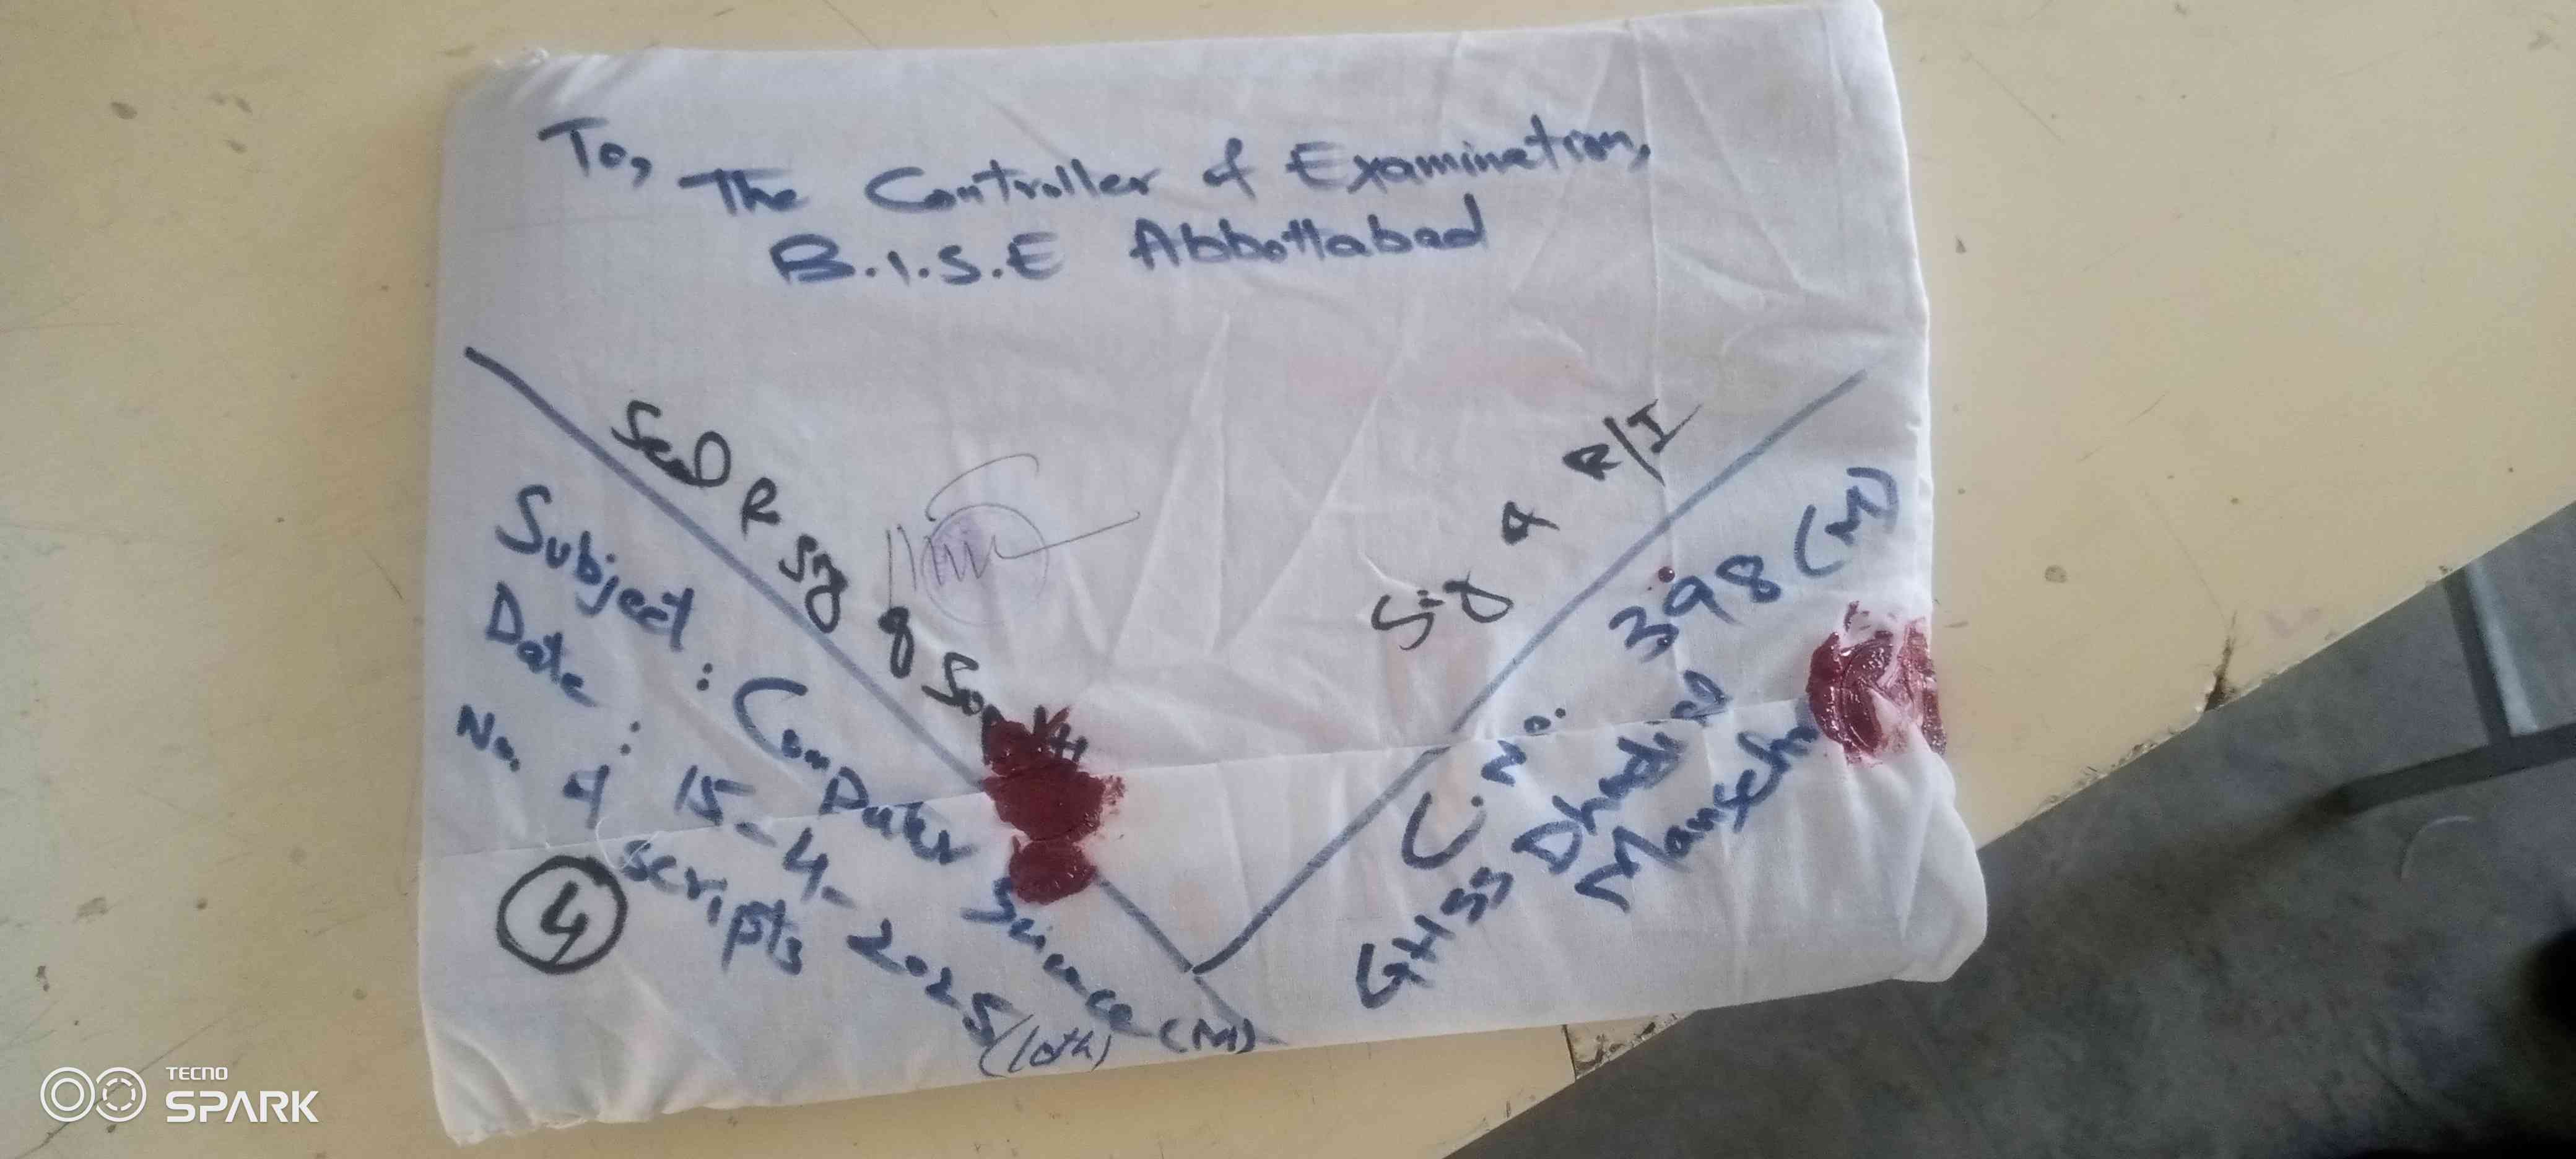 To,
The Controller of Examination,
B.I.S.E Abbottabad
Seal & Sig of
Sig of R/I
Subject : Computer Science (M)
Date : 15-4-2025 (10th)
No. of scripts
4
C. No. 398 (M)
GHSS
Mansehra
TECNO
SPARK